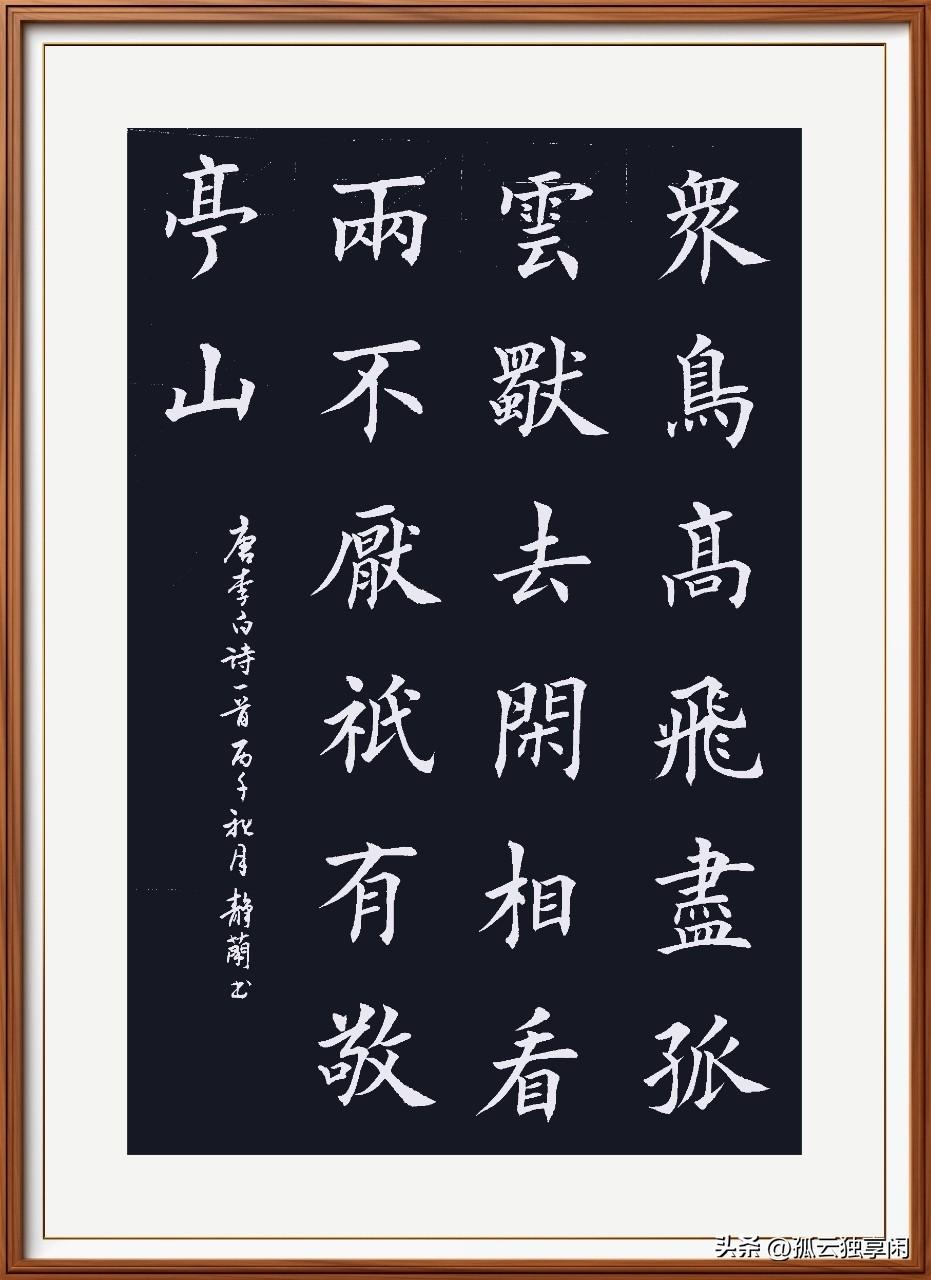 衆鳥高飛盡孤
雲獨去閑相看
兩不厭祇有敬
亭山
唐李白诗一首丙午秋月静蘭书
头条 @孤云独享闲